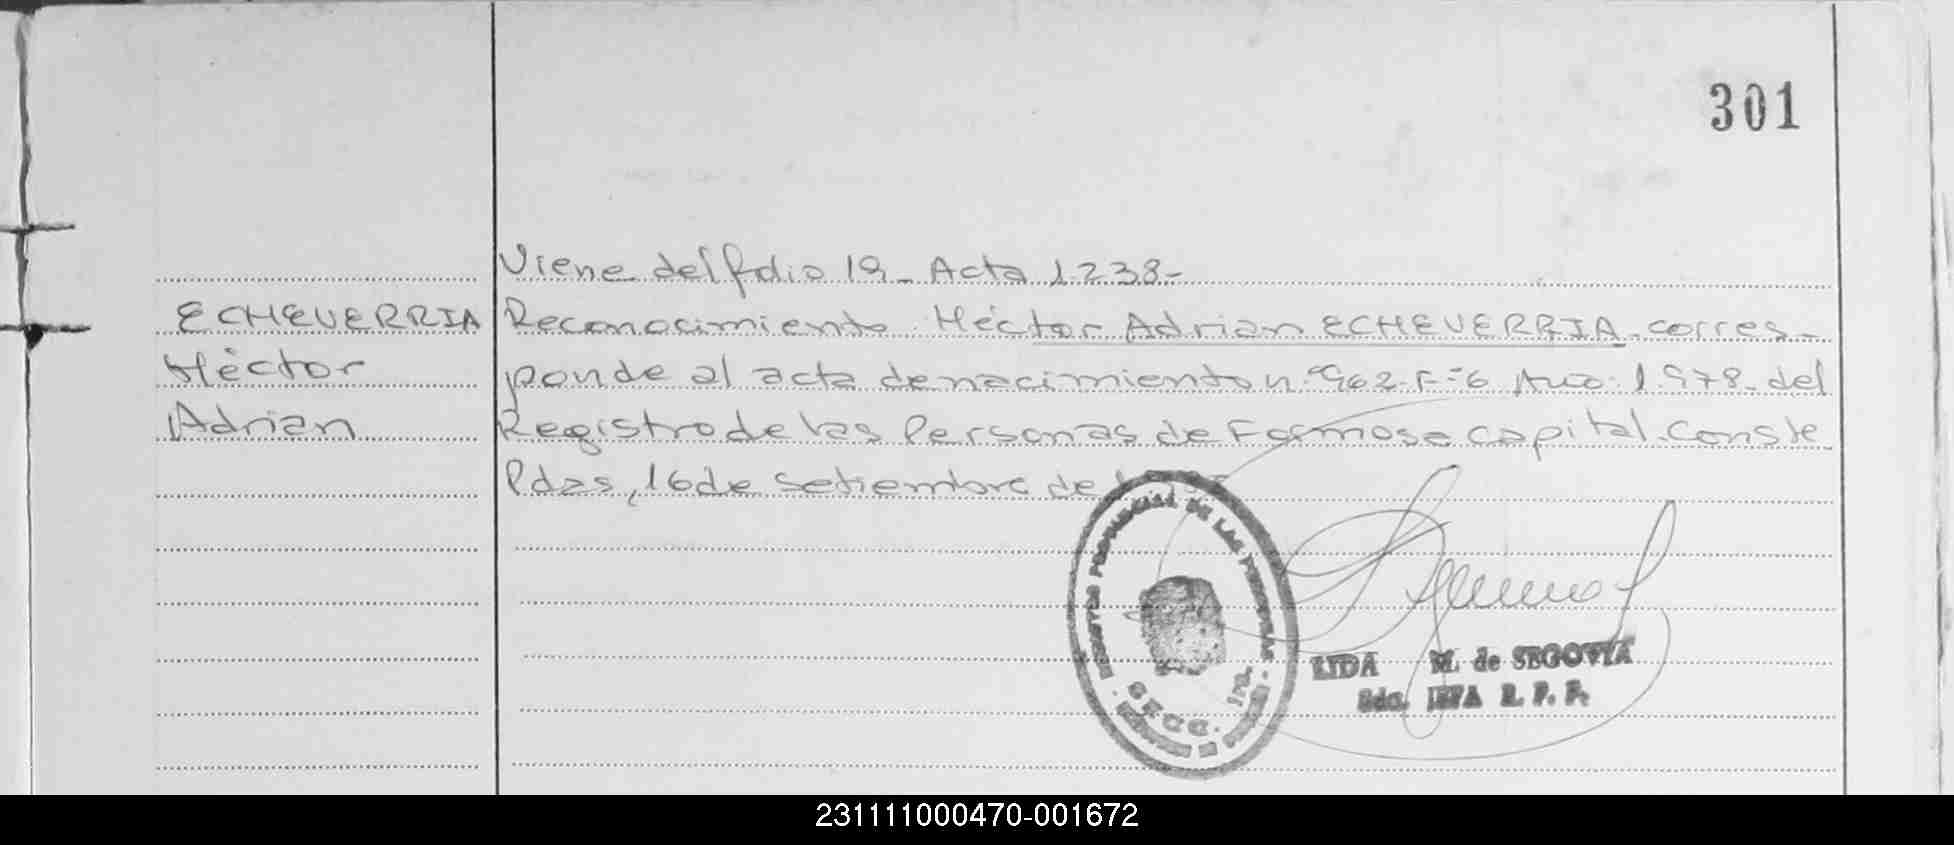 301
Viene del folio 19_ Acta 1.238-
ECHEVERRIA
Héctor
Adrian
Reconocimiento Héctor Adrian ECHEVERRIA. corres-
ponde al acta de nacimiento n.º 962-F-º6 Año: 1.978. del
Registro de las Personas de Formosa capital. Conste
Pdas, 16 de setiembre de
REGISTRO PROVINCIAL DE LAS PERSONAS
SECC. 1ra.
LIDA M. de SEGOVIA
R. P. P.
231111000470-001672